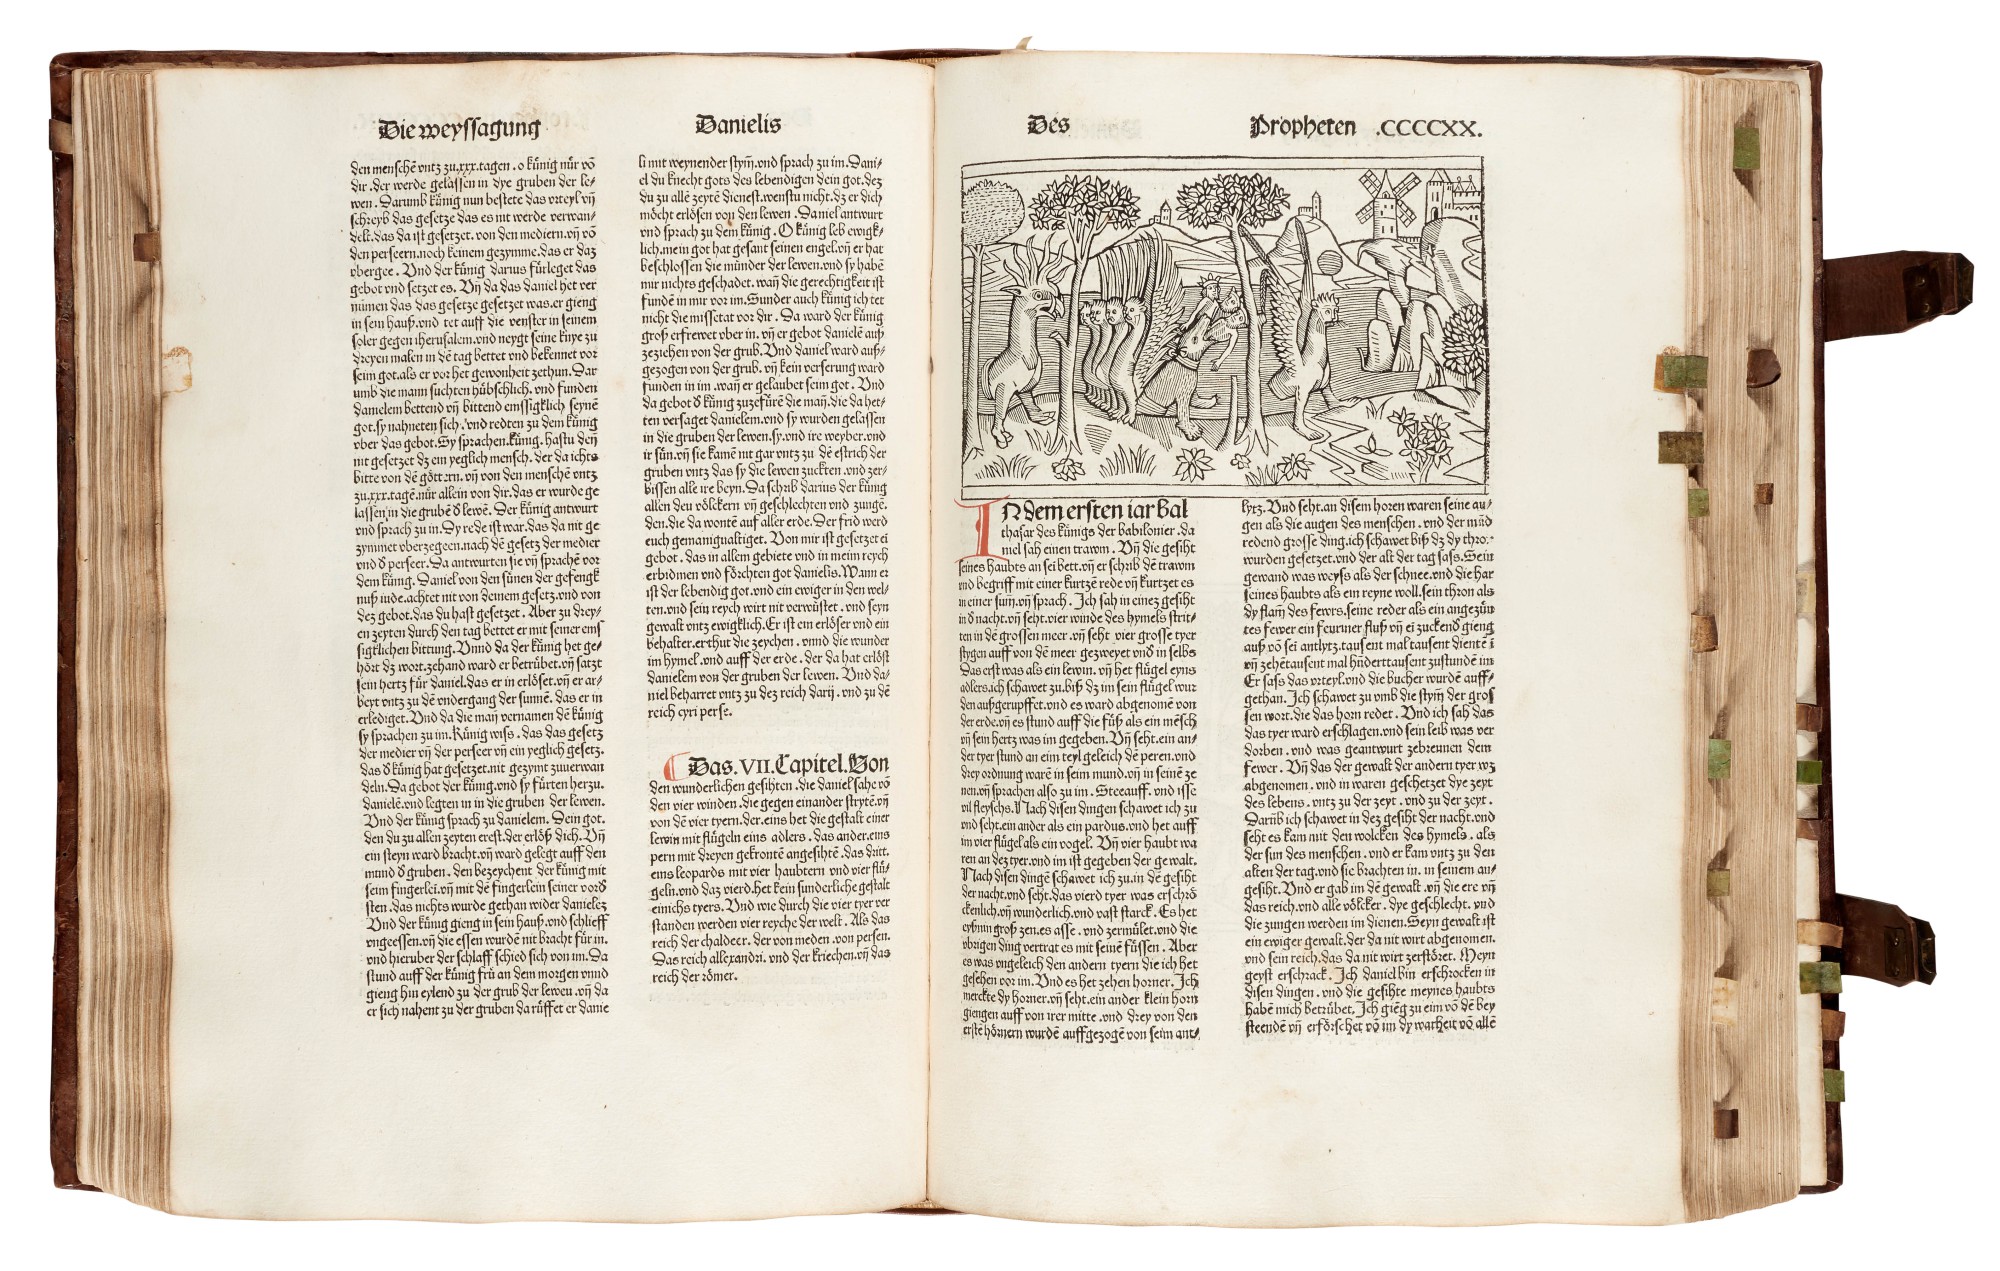 Die weyssagung
Danielis
den menschē vntz zu.xxx.tagen.o künig nür vō
dir.der werde gelassen in dye gruben der le⸗
wen. Darumb künig nun bestete das vrteyl vn̄
schreyb das gesetze das es nit werde verwan⸗
delt.das da ist gesetzet.von den mediern.vn̄ vō
den perseern.noch keinem gezymme.das er daz
vbergee. Vnd der künig darius fürleget das
gebot vnd setzet es. Vn̄ da das daniel het ver
nūmen das das gesetze gesetzet was.er gieng
in sein hauß.vnd tet auff die venster in seinem
soler gegen iherusalem.vnd neygt seine knye zu
dreyen malen in dē tag bettet vnd bekennet vor
seim got.als er vor het gewonheit zethun.Dar
umb die mann suchten hübschlich.vnd funden
danielem bettend vn̄ bittend emssigklich seynē
got.sy nahneten sich.vnd redten zu dem künig
vber das gebot.Sy sprachen.künig.hastu den̄
nit gesetzet dz ein yeglich mensch.der da ichts
bitte von den göttern.vn̄ von den menschē vntz
zu.xxx.tagē.nür allein von dir.das er wurde ge
lassen in die grubē d̓ lewē. Der künig antwurt
vnd sprach zu in.Dy rede ist war.das da nit ge
zymmet vberzegeen.nach dē gesetz der medier
vnd d̓ perseer.Da antwurten sie vn̄ sprachē vor
dem künig. Daniel von den sünen der gefengk
nuß iude.achtet nit von deinem gesetz.vnd von
dez gebot.das du hast gesetzet. Aber zu drey⸗
en zeyten durch den tag bettet er mit seiner ems
sigklichen bittung. Vnnd da der künig het ge⸗
hört dz wort.zehand ward er betrübet.vn̄ satzt
sein hertz für daniel.das er in erlöset.vn̄ er ar⸗
beyt vntz zu dē vndergang der sunnē.das er in
erlediget.Vnd da die man̄ vernamen dē künig
sy sprachen zu im.Künig wiss.das das gesetz
der medier vn̄ der perseer vn̄ ein yeglich gesetz.
das d̓ künig hat gesetzet.nit gezymt zuuerwan
deln. Da gebot der künig.vnd sy fürten herzu.
danielē.vnd legten in in die gruben der lewen.
Vnd der künig sprach zu danielem. Dein got.
den du zu allen zeyten erest.der erlöß dich. Vn̄
ein steyn ward bracht.vn̄ ward gelegt auff den
mund d̓ gruben.den bezeychent der künig mit
seim fingerlei.vn̄ mit dē fingerlein seiner vord
sten.das nichts wurde gethan wider danielez
Vnd der künig gieng in sein hauß.vnd schlieff
vngeessen.vn̄ die essen wurdē nit bracht für in.
vnd hieruber der schlaff schied sich von im. Da
stund auff der künig frü an dem morgen vnnd
gieng hin eylend zu der grub der lewen.vn̄ da
er sich nahent zu der gruben da rüffet er danie
li mit weynender stym̄.vnd sprach zu im.Dani⸗
el du knecht gots des lebendigen dein got.dez
du zu allē zeytē dienest.wenstu nicht.dz er dich
möcht erlösen von den lewen. Daniel antwurt
vnd sprach zu dem künig. O künig leb ewigk⸗
lich.mein got hat gesant seinen engel.vn̄ er hat
beschlossen die münder der lewen.vnd sy habē
mir nichts geschadet.wan̄ die gerechtigkeit ist
fundē in mir vor im.Sunder auch künig ich tet
nicht die missetat vor dir. Da ward der künig
groß erfrewet vber in.vn̄ er gebot danielē auß
zeziehen von der grub.Vnd daniel ward auß⸗
gezogen von der grub.vn̄ kein verserung ward
funden in im.wan̄ er gelaubet seim got. Vnd
da gebot d̓ künig zuzefüren die man̄.die da het⸗
ten versaget danielem.vnd sy wurden gelassen
in die gruben der lewen.sy.vnd ire weyber.vnd
ir sün.vn̄ sie kamē nit gar vntz zu dē estrich der
gruben vntz das sy die lewen zuckten.vnd zer⸗
bissen alle ire beyn.Da schrib darius der künig
allen den völckern vn̄ geschlechten vnd zungē.
den.die da wontē auf aller erde.Der frid werd
euch gemanigualtiget. Von mir ist gesetzet ei
gebot.das in allem gebiete vnd in mein reych
erbidmen vnd förchten got danielis.Wann er
ist der lebendig got.vnd ein ewiger in den wel⸗
ten.vnd sein reych wirt nit verwüstet.vnd seyn
gewalt vntz ewigklich.Er ist ein erlöser vnd ein
behalter.er thut die zeychen.vnnd die wunder
im hymel.vnd auff der erde.der da hat erlöst
danielem von der gruben der lewen. Vnd da⸗
niel beharret vntz zu dez reich darij.vnd zu dē
reich cyri perse.
Das.VII.Capitel.Von
den wunderlichen gesihten.die daniel sahe vō
den vier winden.die gegen einander strytē.vn̄
von dē vier tyern.der.eins het die gestalt einer
lewin mit flügeln eins adlers.das ander.eins
pern mit dreyen gekrontē angesihtē.das dritt.
eins leopards mit vier haubtern vnd vier flü⸗
geln.vnd daz vierd.het kein sunderliche gestalt
einichs tyers. Vnd wie durch die vier tyer ver
standen werden vier reyche der welt. Als das
reich der chaldeer.der von meden.von persen.
Das reich allexandri.vnd der kriechen.vn̄ das
reich der römer.
Des
Propheten .CCCCXX.
IN dem ersten iar Bal
thasar des künigs der babilonier.da
niel sah einen trawm. Vn̄ die gesiht
seines haubts an sei bett.vn̄ er schrib dē trawm
vnd begriff mit einer kurtzē rede vn̄ kurtzet es
in einer sum̄.vn̄ sprach. Jch sah in einez gesiht
in d̓ nacht.vn̄ seht.vier winde des hymels strit⸗
ten in dē grossen meer.vn̄ seht vier grosse tyer
stygen auff von dē meer gezweyet vnd in selbs
Das erst was als ein lewin.vn̄ het flügel eyns
adlers.ich schawet zu.biß dz im sein flügel wur
den außgerupffet.vnd es ward abgenomē von
der erde.vn̄ es stund auff die füß als ein mēsch
vn̄ sein hertz was im gegeben. Vn̄ seht.ein an⸗
der tyer stund an eim teyl geleich dē peren.vnd
drey ordnung warē in seim mund.vn̄ in seinē ze
nen.vn̄ sprachen also zu im. Steeauff.vnd isse
vil fleyschs.Nach disen dingen schawet ich zu
vnd seht.ein ander als ein pardus.vnd het auff
im vier flügel als ein vogel. Vn̄ vier haubt wa
ren an dez tyer.vnd im ist gegeben der gewalt.
Nach disen dingē schawet ich zu.in dē gesiht
der nacht.vnd seht.das vierd tyer was erschrö
ckenlich.vn̄ wunderlich.vnd vast starck. Es het
eyßnin groß zen.es asse.vnd zermület.vnd die
vbrigen ding vertrat es mit seinē füssen. Aber
es was vngeleich den andern tyern die ich het
gesehen vor im.Vnd es het zehen horner. Jch
merckte dy horner.vn̄ seht.ein ander klein horn
giengen auff von irer mitte.vnd drey von den
erstē hörnern wurdē auffgezogē von seim ant⸗
lytz.Vnd seht.an disem horen waren seine au⸗
gen als die augen des menschen.vnd der mūd
redend grosse ding.ich schawet biß dz dy thro⸗
wurden gesetzet.vnd der alt der tag sass.Sein
gewand was weyss als der schnee.vnd die har
seines haubts als ein reyne woll.sein thron als
dy flam̄ des fewers.seine reder als ein angezün
tes fewer ein feuriner fluß vn̄ ei zuckend gieng
auß vō sei antlytz.tausent mal tausent dientē ī
vn̄ zehētausent mal hūderttausent zustundē im
Er sass das vrteyl.vnd die bucher wurdē auff⸗
gethan. Jch schawet zu vmb die stym̄ der gros
sen wort.die das horn redet. Vnd ich sah das
das tyer ward erschlagen.vnd sein leib was ver
dorben.vnd was geantwurt zebrennen dem
fewer. Vn̄ das der gewalt der andern tyer wz
abgenomen.vnd in waren geschetzet dye zeyt
des lebens.vntz zu der zeyt.vnd zu der zeyt.
Darūb ich schawet in dez gesiht der nacht.vnd
seht es kam mit den wolcken des hymels.als
der sun des menschen.vnd er kam vntz zu den
alten der tag.vnd sie brachten in.in seinem an⸗
gesiht. Vnd er gab im dē gewalt.vn̄ die ere vn̄
das reich.vnd alle völcker.dye geschlecht.vnd
die zungen werden im dienen.Seyn gewalt ist
ein ewiger gewalt.der da nit wirt abgenomen.
vnd sein reich.das da nit wirt zerstöret. Meyn
geyst erschrack. Jch daniel bin erschrocken in
disen dingen.vnd die gesihte meynes haubts
habē mich betrübet.Jch giēg zu eim vō dē bey
steendē vn̄ erforschet vō im dy warheit vō allē